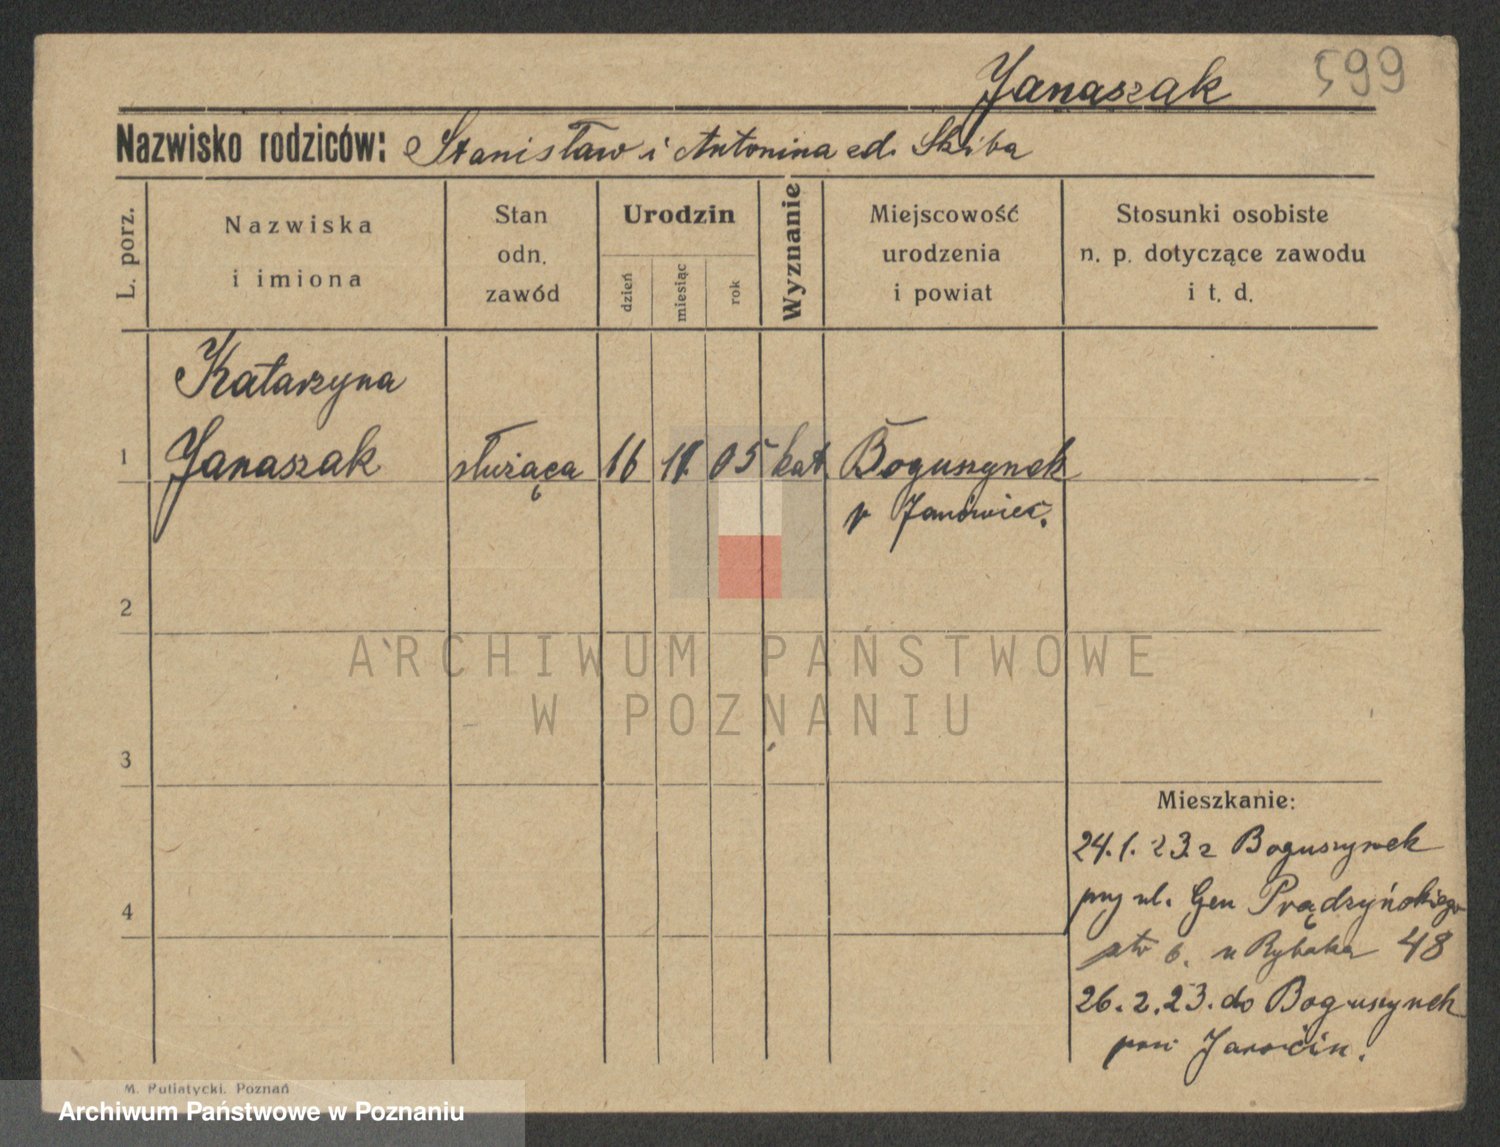 Janaszak 599
Nazwisko rodziców: Stanisław i Antonina zd. Skiba
L. porz.
Nazwiska
i imiona
Stan
odn.
zawód
Urodzin
dzień
miesiąc
rok
Wyznanie
Miejscowość
urodzenia
i powiat
Stosunki osobiste
n. p. dotyczące zawodu
i t. d.
Katarzyna
1 Janaszak służąca 16 11. 05 kat. Boguszynek
p
2
ARCHIWUM PAŃSTWOWE
W POZNANIU
3
Mieszkanie:
24.1.23. z Boguszynek
przy ul. Gen Prądzyńskiego
6. u Rybaka 48
4
26.2.23. do Boguszynek
pow Jarocin.
M. Putiatycki. Poznań
Archiwum Państwowe w Poznaniu